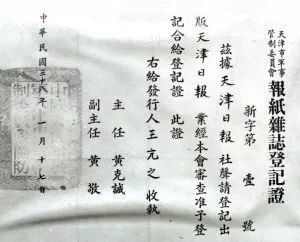 天津市軍事
管制委員會
報紙雜誌登記證
新字第 壹 號
茲據天津日報 社聲請登記出
版天津日報 業經本會審查准予登
記合給登記證 此證
右給發行人王亢之收執
主任 黄克誠
副主任 黄敬
中華民國三十八年一月十七日